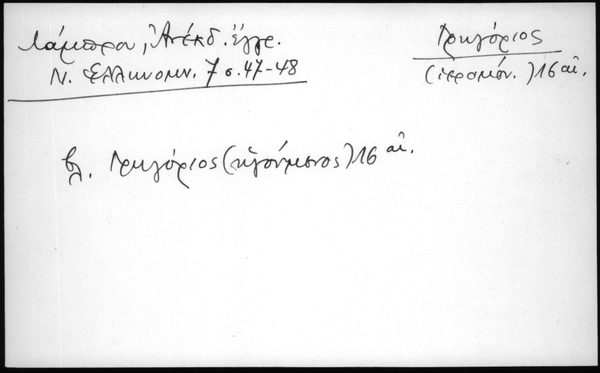 Λάμπρου, Ἀνέκδ. ἔγγρ.
Ν. Ἑλληνομν. 7 σ. 47-48
Γρηγόριος
(ἱερομόν.) 16 αἰ.
βλ. Γρηγόριος (ἡγούμενος) 16 αἰ.